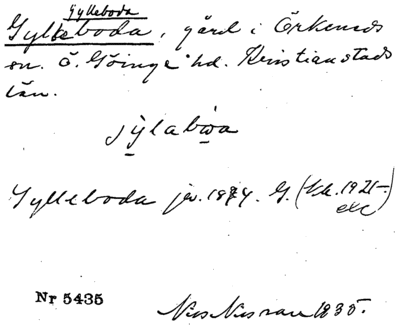 Gylleboda
Gylleboda, gård i Örkeneds
sn. Ö. Göinge hd. Kristianstads
län.
jỳlabωa
Gylleboda jv. 1874. G. (Uk. 1921-.
etc)
Nr 5435
Nils Nilsson 1935.